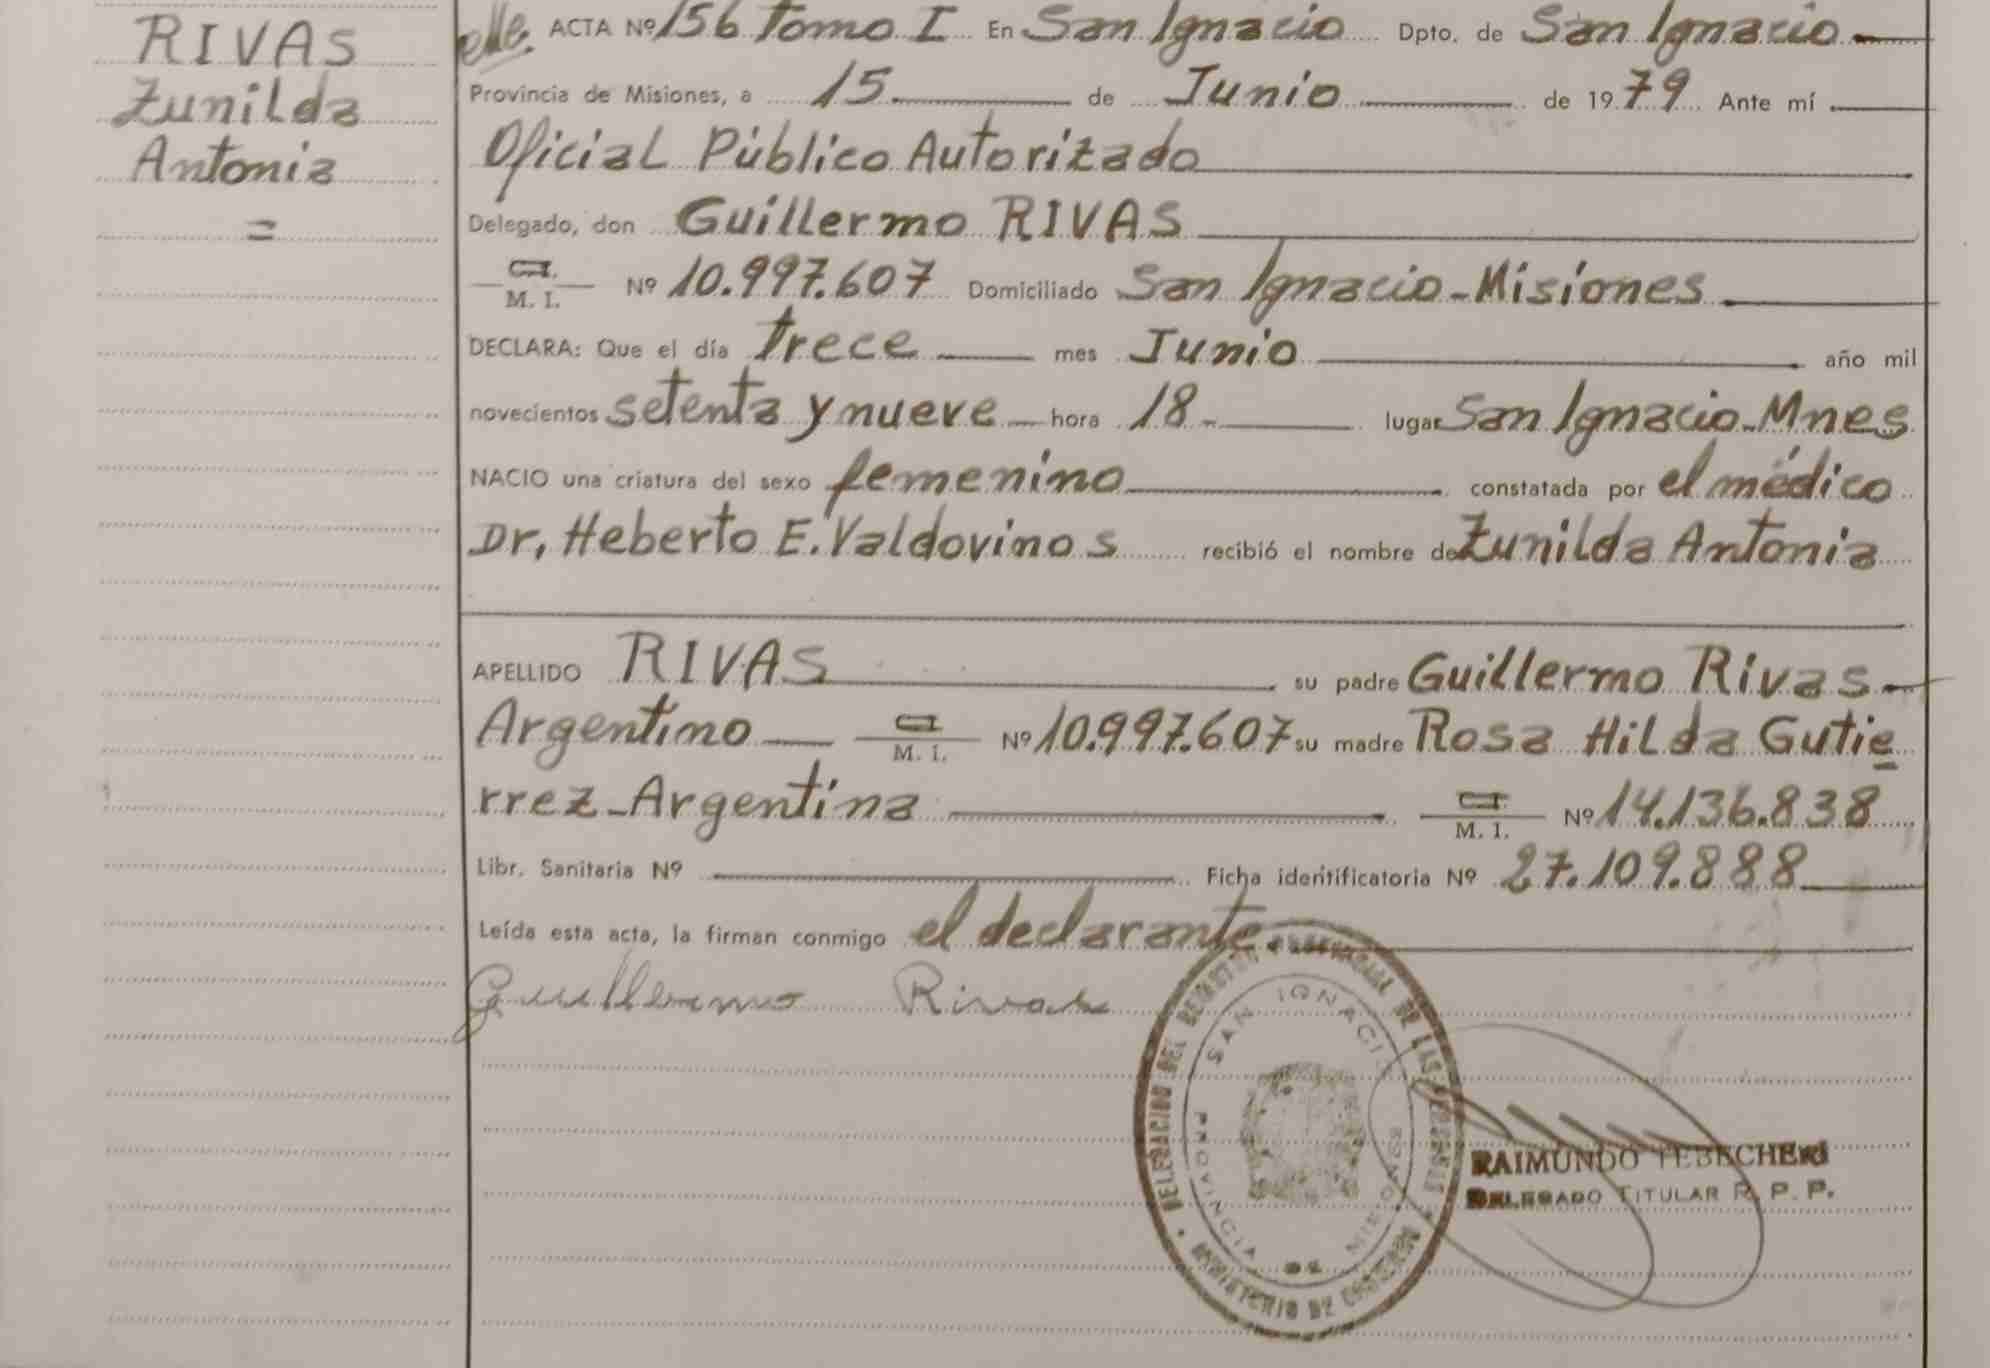 RIVAS
Zunilda
Antonia
=
ACTA Nº 156 Tomo I En San Ignacio Dpto. de San Ignacio
Provincia de Misiones, a 15 de Junio de 1979 Ante mí
Oficial Público Autorizado
Delegado, don Guillermo RIVAS
C.I.
M. I. Nº 10.997.607 Domiciliado San Ignacio-Misiones
DECLARA: Que el día trece mes Junio año mil
novecientos setenta y nueve hora 18.- lugar San Ignacio-Mnes
NACIO una criatura del sexo femenino constatada por el médico
Dr. Heberto E. Valdovinos recibió el nombre de Zunilda Antonia
APELLIDO RIVAS su padre Guillermo Rivas
Argentino C.I.
M. I. Nº 10.997.607 su madre Rosa Hilda Gutie
rrez-Argentina C.I.
M. I. Nº 14.136.838
Libr. Sanitaria Nº Ficha identificatoria Nº 27.109.888
Leída esta acta, la firman conmigo el declarante.
Guillermo Rivas
DELEGACION DEL REGISTRO DE LAS PERSONAS
MINISTERIO DE GOBIERNO
SAN IGNACIO
PROVINCIA DE MISIONES
RAIMUNDO TEBECHERI
DELEGADO TITULAR R. P. P.